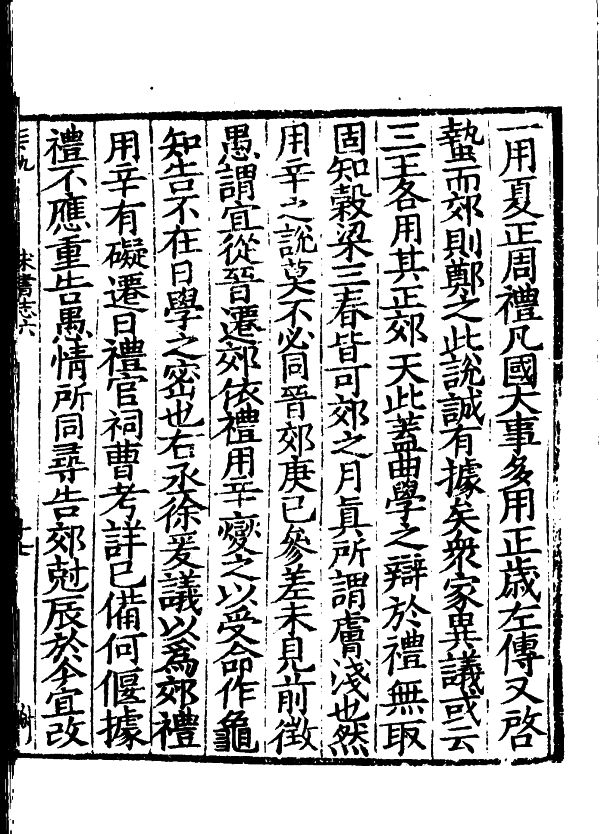 一用夏正周禮凡國大事多用正歲左傳又啓
蟄而郊則鄭之此說誠有據矣衆家異議或云
三王各用其正郊天此蓋曲學之辯於禮無取
固知穀梁三春皆可郊之月眞所謂膚淺也然
用辛之說莫不必同晉郊庚巳參差未見前徵
愚謂宜從晉遷郊依禮用辛變之以受命作龜
知告不在日學之密也右丞徐爰議以爲郊禮
用辛有礙遷日禮官祠曹考詳已備何偃據
禮不應重告愚情所同尋告郊尅辰於今宜改
宋書志六